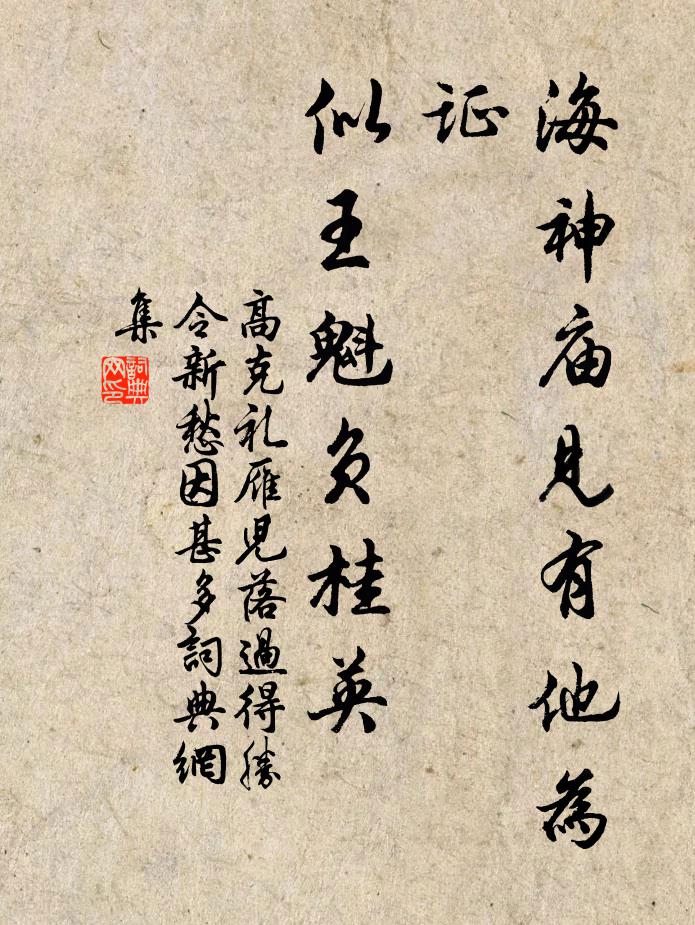 海神庙見有他為
証
似王魁负桂英
高克礼雁児落過得勝
令新愁因甚多詞典網
集
詞典
网印